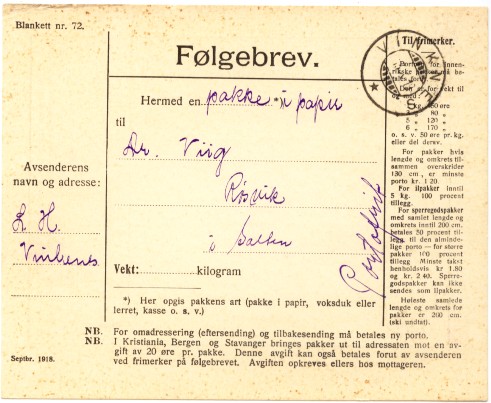 Blankett nr. 72.
Følgebrev.
Hermed en pakke *) i papir
til
Dr. Viig
Røsvik
i Salten
Vekt: kilogram
*) Her opgis pakkens art (pakke i papir, voksduk eller
lerret, kasse o. s. v.)
Avsenderens
navn og adresse:
L. H.
Til frimerker.
Porto for innen-
rikske pakker må be-
tales forut.
Den er for vekt til
og med:
80 "
5 " 120 "
6 " 170 "
o. s. v. 50 øre pr. kg.
eller del derav.
For pakker hvis
lengde og omkrets til-
sammen overskrider
130 cm, er minste
porto kr. 1 20.
For ilpakker inntil
5 kg. 100 procent
tillegg.
For sperregodspakker
med samlet lengde og
omkrets inntil 200 cm.
betales 50 procent til-
legg til den alminde-
lige porto — for større
pakker 100 procent
tillegg Minste takst
henholdsvis kr 1.80
og kr. 2 40. Sperre-
godspakker kan ikke
sendes som ilpakker.
Høieste samlede
lengde og omkrets
for pakker er 200 cm.
(ski undtat).
NB. For omadressering (eftersending) og tilbakesending må betales ny porto.
NB. I Kristiania, Bergen og Stavanger bringes pakker ut til adressaten mot en av-
gift av 20 øre pr. pakke. Denne avgift kan også betales forut av avsenderen
ved frimerker på følgebrevet. Avgiften opkreves ellers hos mottageren.
Septbr. 1918.